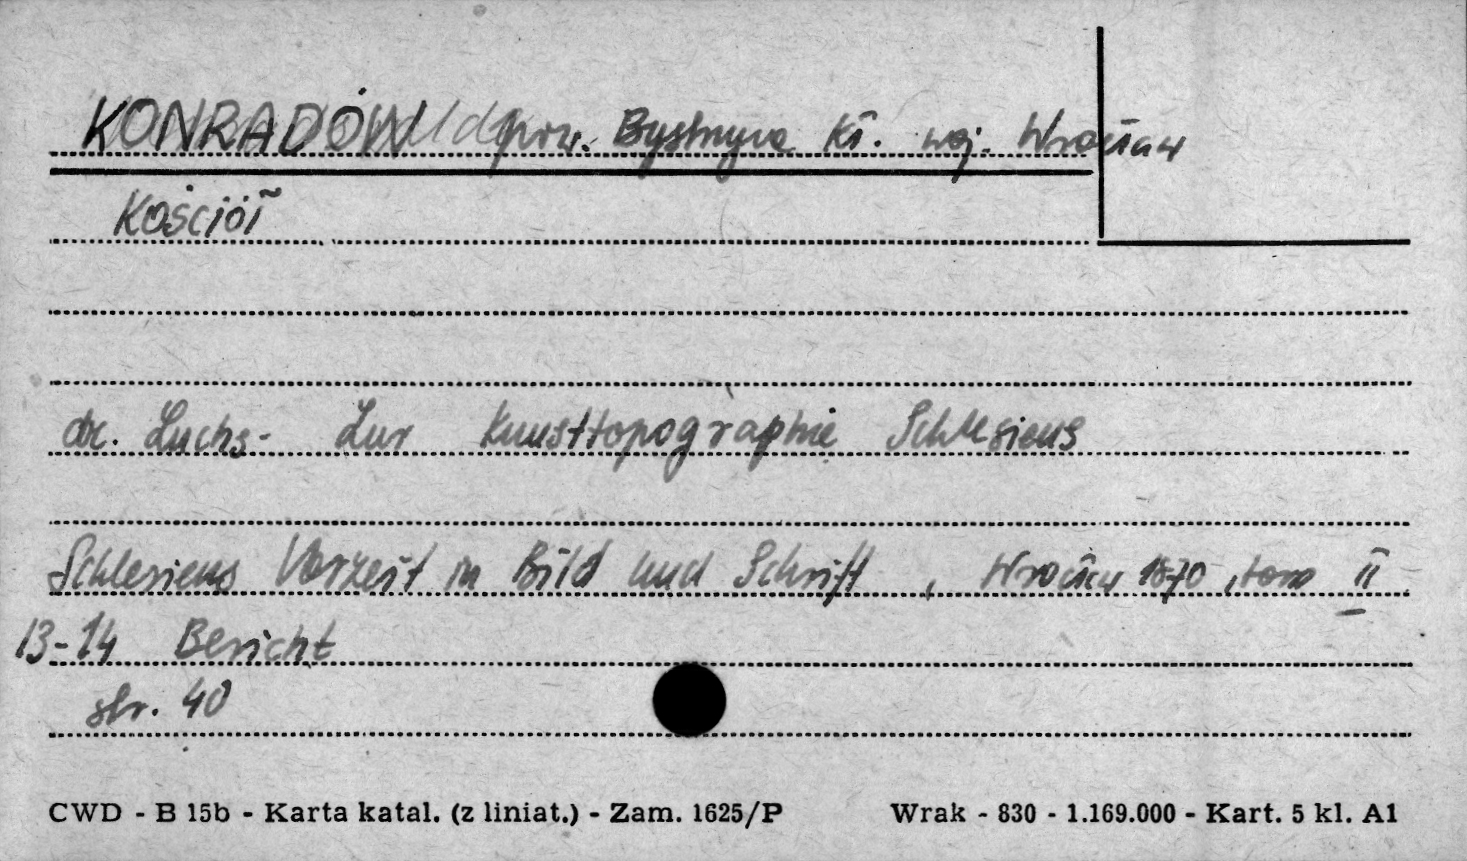 KONRADÓW pow. Bystrzyca Kł. woj. Wrocław
Kościół
dr. Luchs - Zur Kunsttopographie Schlesiens
Schlesiens Vorzeit in Bild und Schrift, Wrocław 1870, tom II
13-14 Bericht
str. 40
CWD - B 15b - Karta katal. (z liniat.) - Zam. 1625/P Wrak - 830 - 1.169.000 - Kart. 5 kl. A1